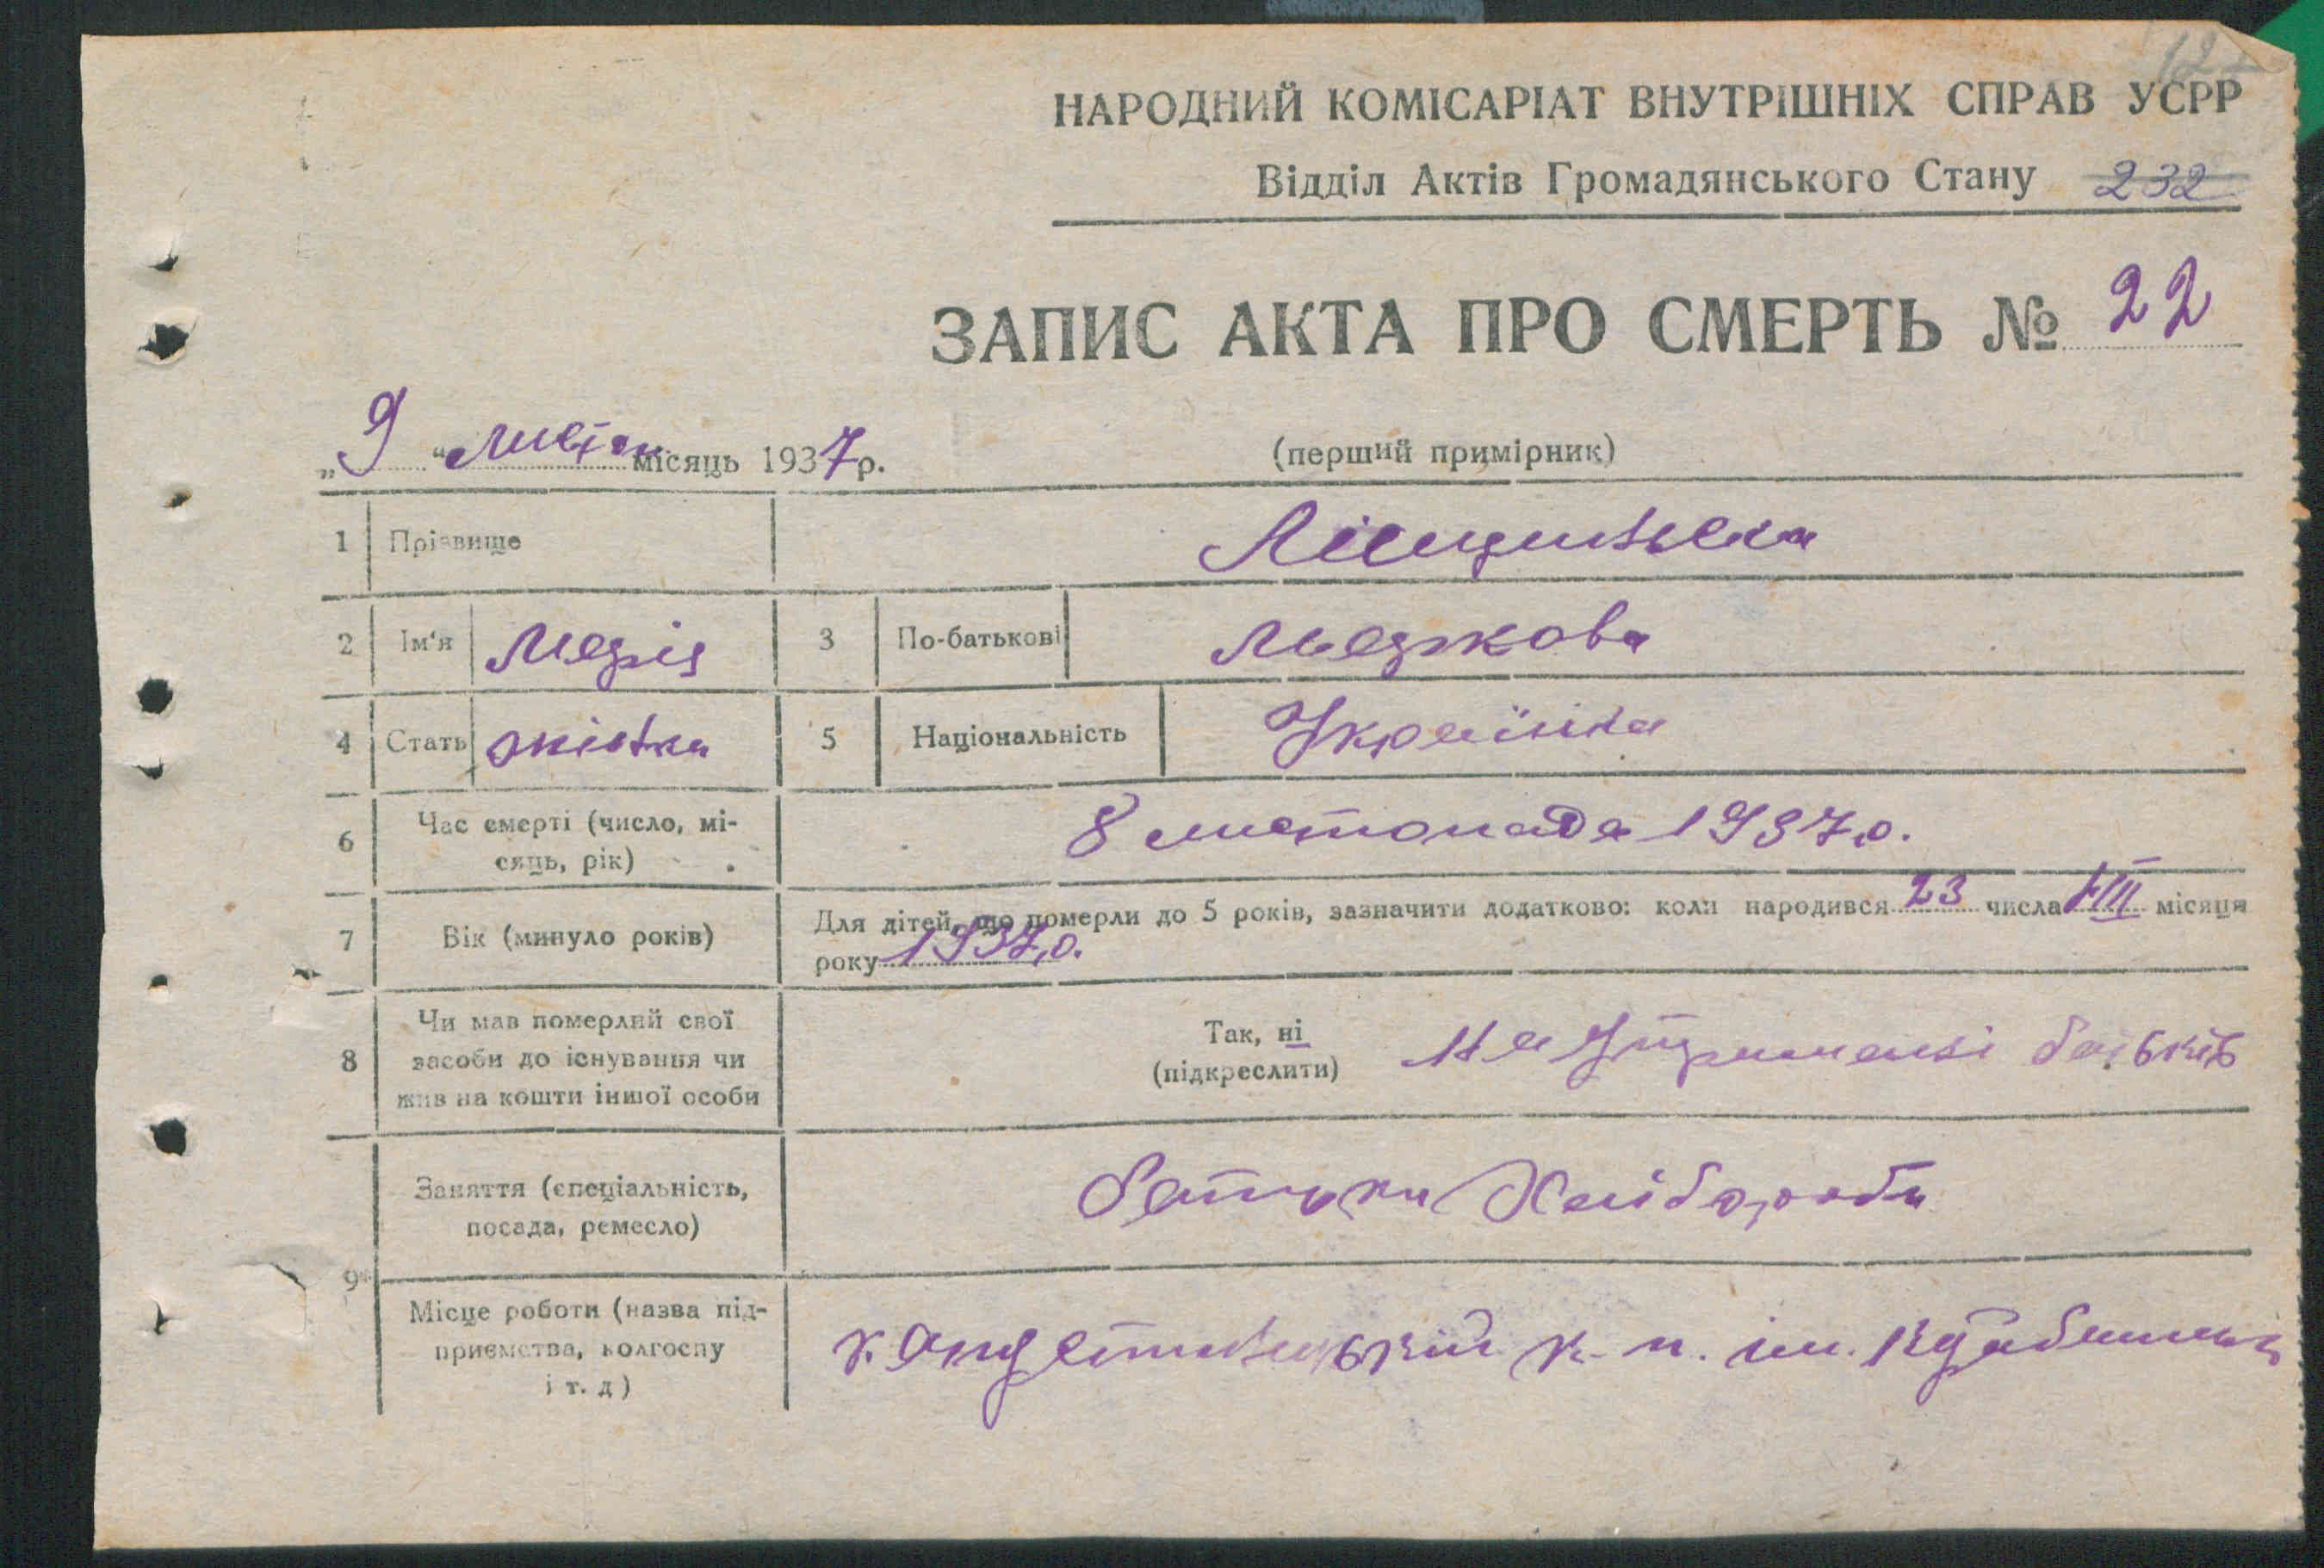 НАРОДНИЙ КОМІСАРІАТ ВНУТРІШНІХ СПРАВ УСРР
Відділ Актів Громадянського Стану 232
ЗАПИС АКТА ПРО СМЕРТЬ № 22
„ 9 “ місяць 1937 р.
(перший примірник)
1 Прізвище
2 Ім‘я Марія 3 По-батькові
4 Стать жінка 5 Національність Українка
6 Час смерті (число, мі-
сяць, рік) 8 листопада 1937 р.
7 Вік (минуло років) Для дітей, що померли до 5 років, зазначити додатково: коли народився 23 числа VIII місяця
року 1937 р.
8 Чи мав померлий свої
засоби до існування чи
жив на кошти іншої особи
Так, ні
(підкреслити) На утриманні батьків
9 Заняття (спеціальність,
посада, ремесло) батьки Хлібороби
Місце роботи (назва під-
приємства, колгоспу
і т. д)
ім.